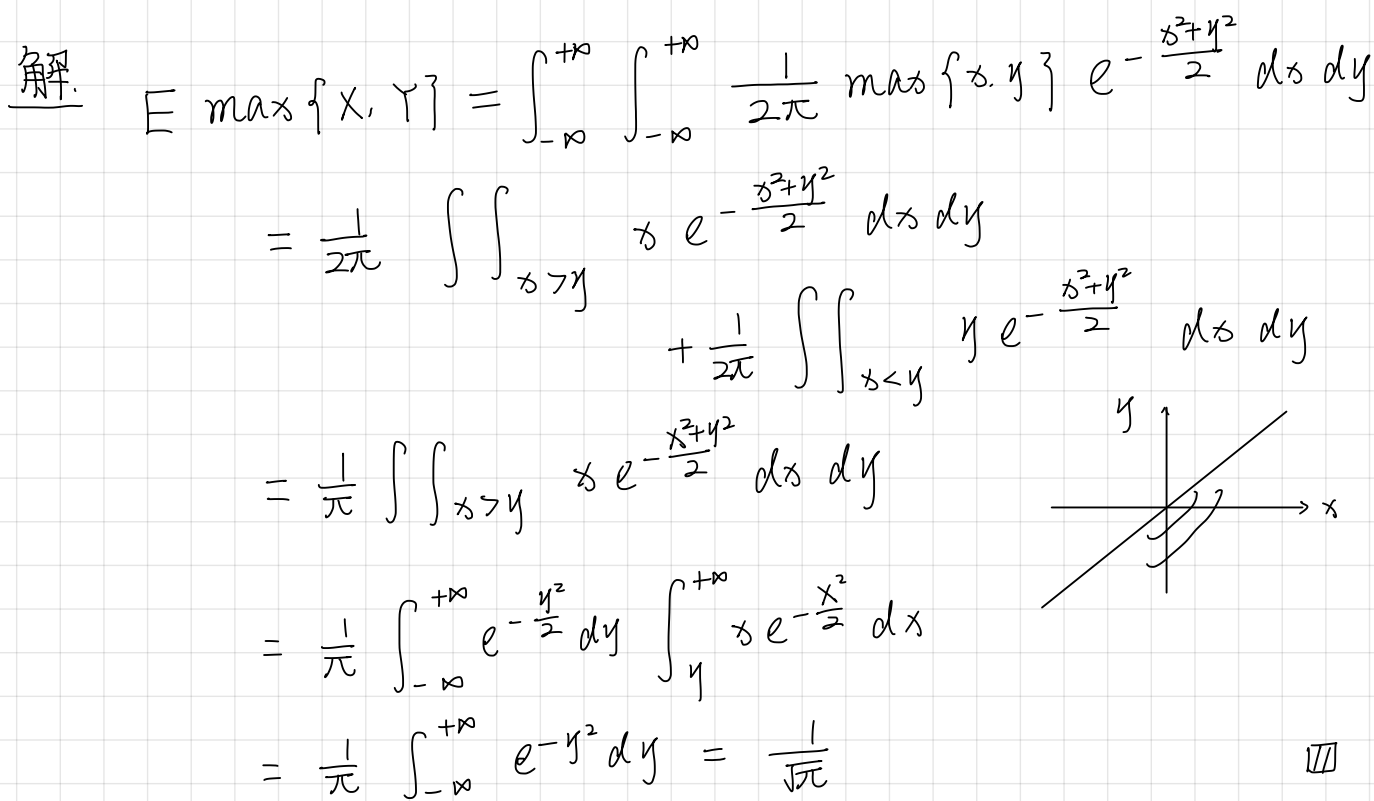 解. E max{X, Y} = ∫_{-∞}^{+∞} ∫_{-∞}^{+∞} \frac{1}{2π} max{x, y} e^{-\frac{x²+y²}{2}} dx dy
= \frac{1}{2π} ∫∫_{x>y} x e^{-\frac{x²+y²}{2}} dx dy
+ \frac{1}{2π} ∫∫_{x<y} y e^{-\frac{x²+y²}{2}} dx dy
y
= \frac{1}{π} ∫∫_{x>y} x e^{-\frac{x²+y²}{2}} dx dy
x
= \frac{1}{π} ∫_{-∞}^{+∞} e^{-\frac{y²}{2}} dy ∫_{y}^{+∞} x e^{-\frac{x²}{2}} dx
= \frac{1}{π} ∫_{-∞}^{+∞} e^{-y²} dy = \frac{1}{\sqrt{π}}